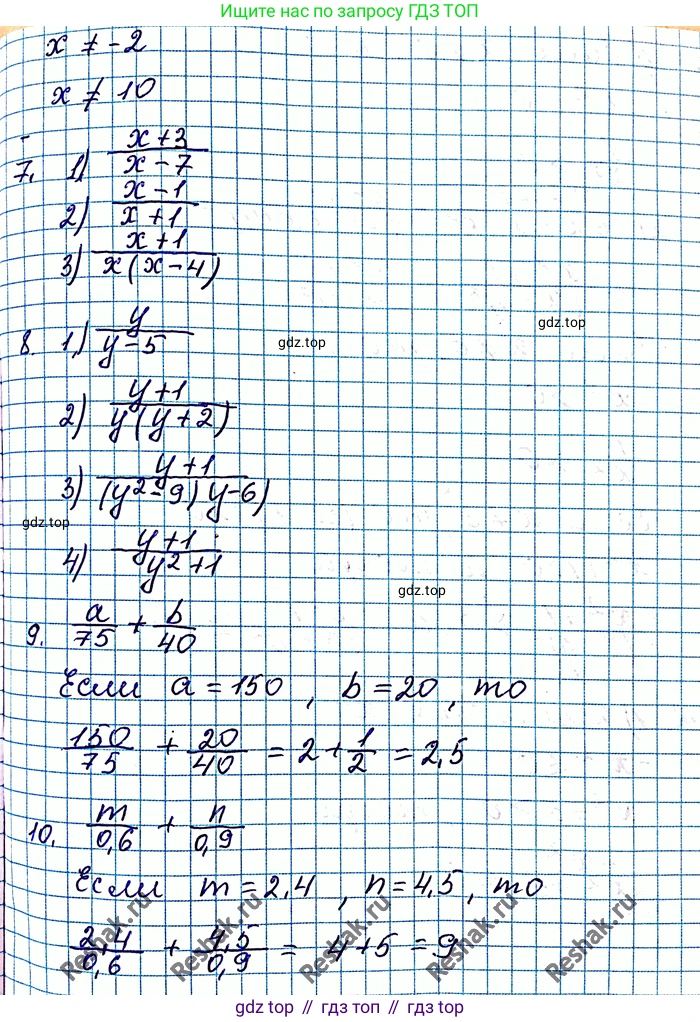 Ищите нас по запросу ГДЗ ТОП
x ≠ -2
x ≠ 10
7. 1) (x+3)/(x-7)
2) (x-1)/(x+1)
3) (x+1)/(x(x-4))
8. 1) y/(y-5)
gdz.top
gdz.top
2) (y+1)/(y(y+2))
3) (y+1)/((y²-9)y-6)
gdz.top
4) (y+1)/(y²+1)
gdz.top
9. a/75 + b/40
Если a = 150, b = 20, то
150/75 + 20/40 = 2 + 1/2 = 2,5
10. m/0,6 + n/0,9
Если m = 2,4, n = 4,5, то
2,4/0,6 + 4,5/0,9 = 4+5 = 9
Reshak.ru Reshak.ru Reshak.ru Reshak.ru Reshak.ru
gdz top // гдз топ // gdz.top